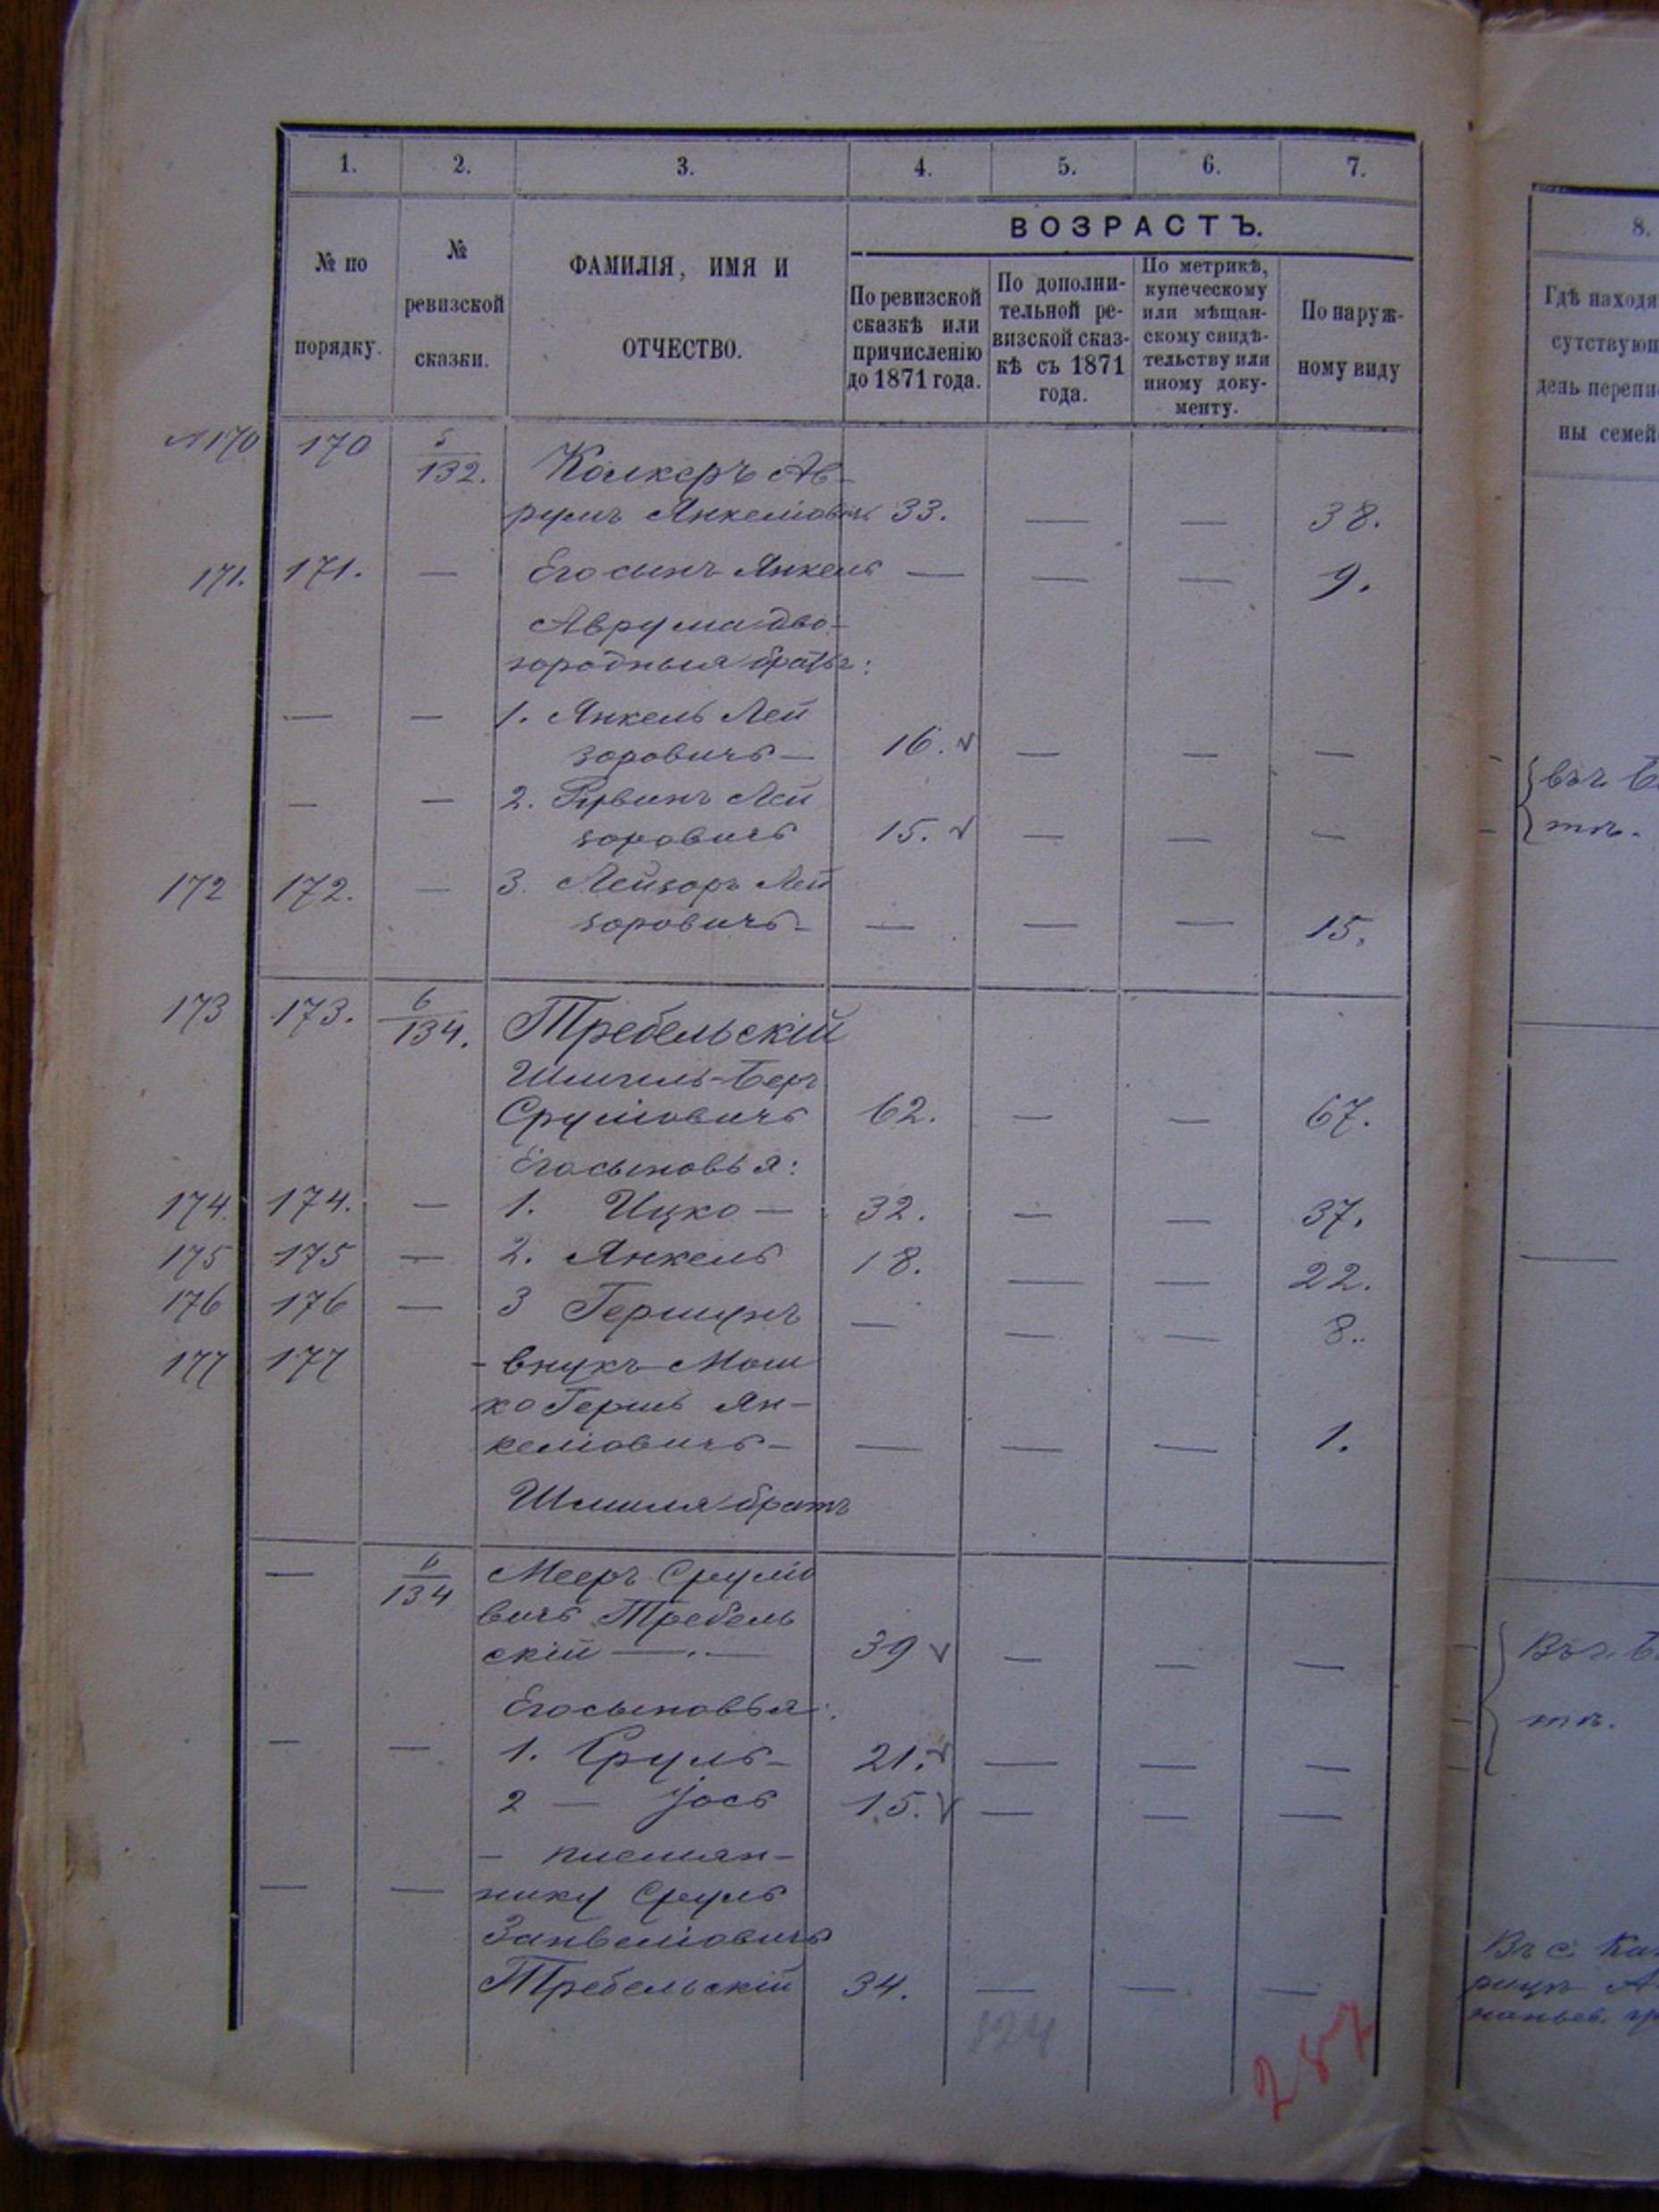 1. 2. 3. 4. 5. 6. 7.
ВОЗРАСТЪ.
№ по порядку.
№ ревизской сказки.
ФАМИЛІЯ, ИМЯ И ОТЧЕСТВО.
По ревизской сказкѣ или причисленію до 1871 года.
По дополнительной ревизской сказкѣ съ 1871 года.
По метрикѣ, купеческому или мѣщанскому свидѣтельству или иному документу.
По наружному виду
170 170 5/132. Колкеръ Ав-
румъ Янкеліовичъ 33. — — 38.
171. 171. — Его сынъ Янкель — — — 9.
Аврума двою-
родныя братья:
— — 1. Янкель Лей
зоровичъ — 16. — — —
— — 2. Рувинъ Лей
зоровичъ 15. — — —
172 172. — 3. Лейзоръ Лей
зоровичъ — — — — 15.
173 173. 6/134. Требельскій
Шмиль-Беръ
Сруліовичъ 62. — — 67.
Его сыновья:
174. 174. — 1. Ицко — 32. — — 37.
175 175 — 2. Янкель 18. — — 22.
176 176 — 3 Гершунъ — — — 8.
177 177 - внукъ Мош
ко Гершь Ян-
келіовичъ — — — — 1.
Шмиля братъ
— 6/134 Мееръ Срулiо
вичъ Требель
скій — 39 — — —
Его сыновья:
— — 1. Сруль — 21. — — —
2 — Іось 15. — — —
— племян-
— — нику Сруль
Занвеліовичъ
Требельскій 34. — — —
124
287
8.
Гдѣ находя
сутствующ
дель перепи
ны семей
въ г. Б
тѣ.
Въ г. Б
тѣ.
Въ с.
наньев.